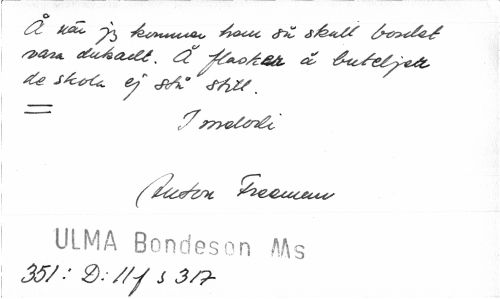 Å när jg kommer hem så skall bordet
vara dukadt. Å flasker å buteljer
de skola ej stå still.
I melodi
Anton Freeman
ULMA Bondeson Ms
351: D: 11 f s 317